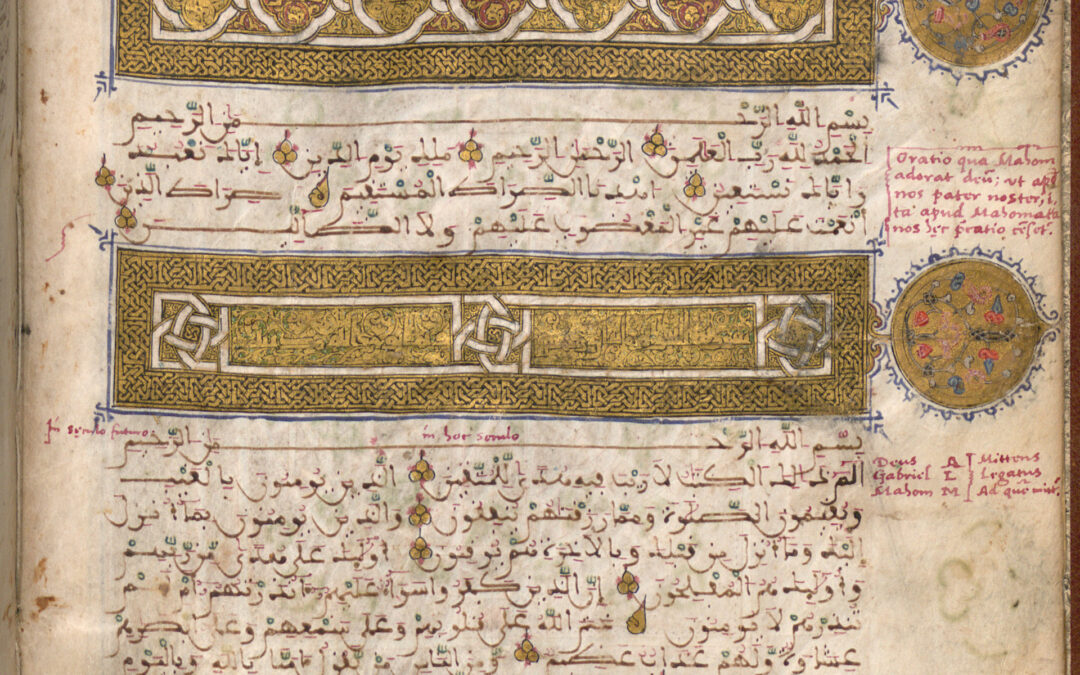 بسم الله الرحمن الرحيم
الحمد لله رب العلمين الرحمن الرحيم ملك يوم الدين إياك نعبد
وإياك نستعين اهدنا الصراط المستقيم صراط الذين
أنعمت عليهم غير المغضوب عليهم ولا الضالين
Oratio qua Mahom
adorat deū; ut apd
nos pater noster, i
ta apud Mahometa
nos hęc
In sęculo futuro
in hoc seculo
بسم الله الرحمن الرحيم
الم ذلك الكتب لا ريب فيه هدى للمتقين الذين يومنون بالغيب
ويقيمون الصلوة ومما رزقنهم ينفقون والذين يومنون بما أنزل
إليك وما أنزل من قبلك وبالاخرة هم يوقنون أوليك على هدى من ربهم
وأوليك هم المفلحون إن الذين كفروا سواء عليهم ءانذرتهم أم لم
تنذرهم لا يومنون ختم الله على قلوبهم وعلى سمعهم وعلى أبصرهم
غشوة ولهم عذاب عظيم ومن الناس من يقول امنا بالله وباليوم
Deus A Mittens
Gabriel L Legatus
Mahom M Ad quē